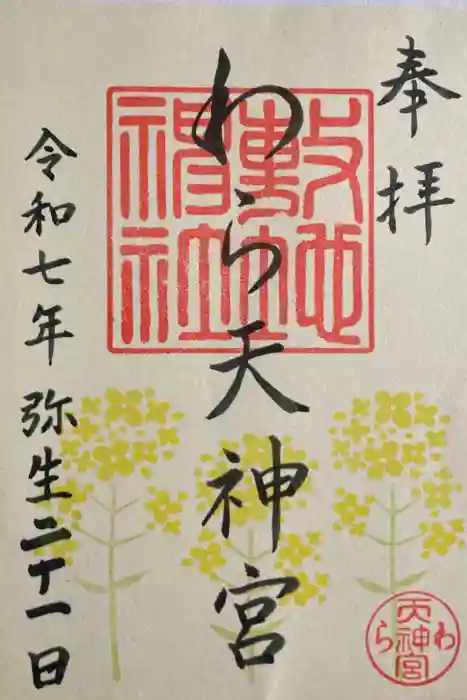 奉拝
わら天神宮
令和七年 弥生二十一日
敷地神社
わら天神宮